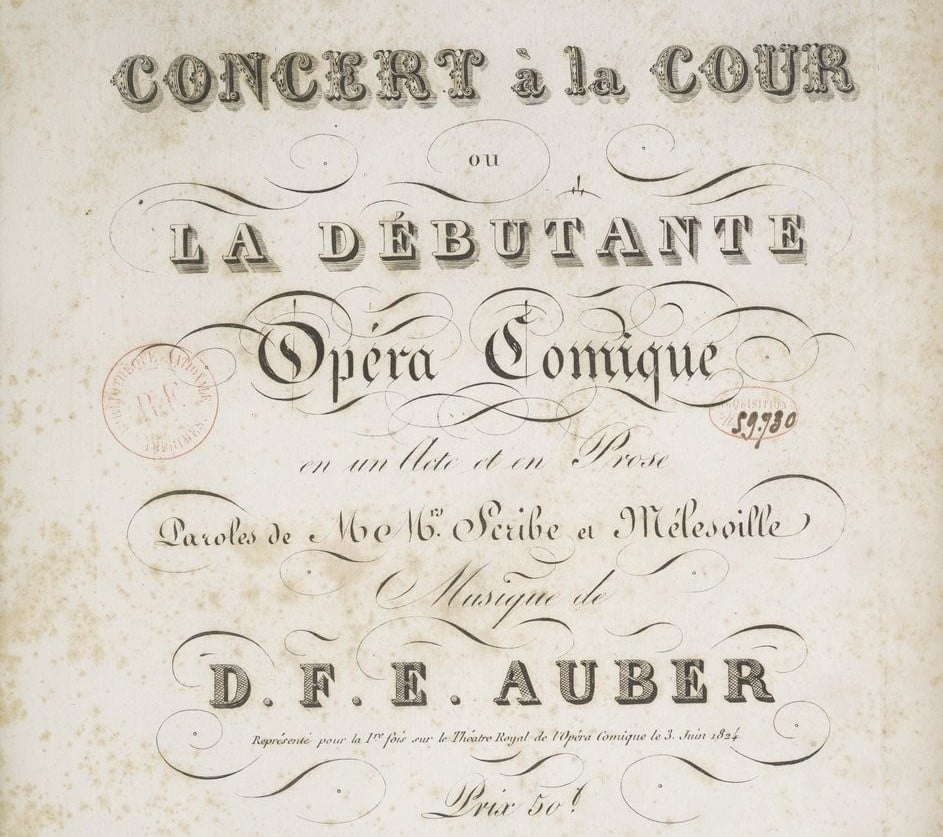 CONCERT à la COUR
ou
LA DÉBUTANTE
Opéra Comique
en un Acte et en Prose
Paroles de M M.rs Scribe et Mélesville
Musique de
D. F. E. AUBER
Représenté pour la 1.re fois sur le Théatre Royal de l'Opéra Comique le 3. Juin 1824.
Prix 50 f
BIBLIOTHEQUE NATIONALE
R.F.
IMPRIMES
ACQUISITION
59.730